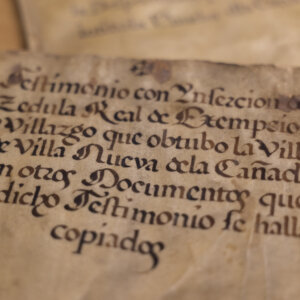 Testimonio con Ynsercion d
Zedula Real de Exempzio
Villazgo que obtubo la Vill
e Villa Nueva dela Cañad
n otros Documentos que
dicho Testimonio se hall
copiados